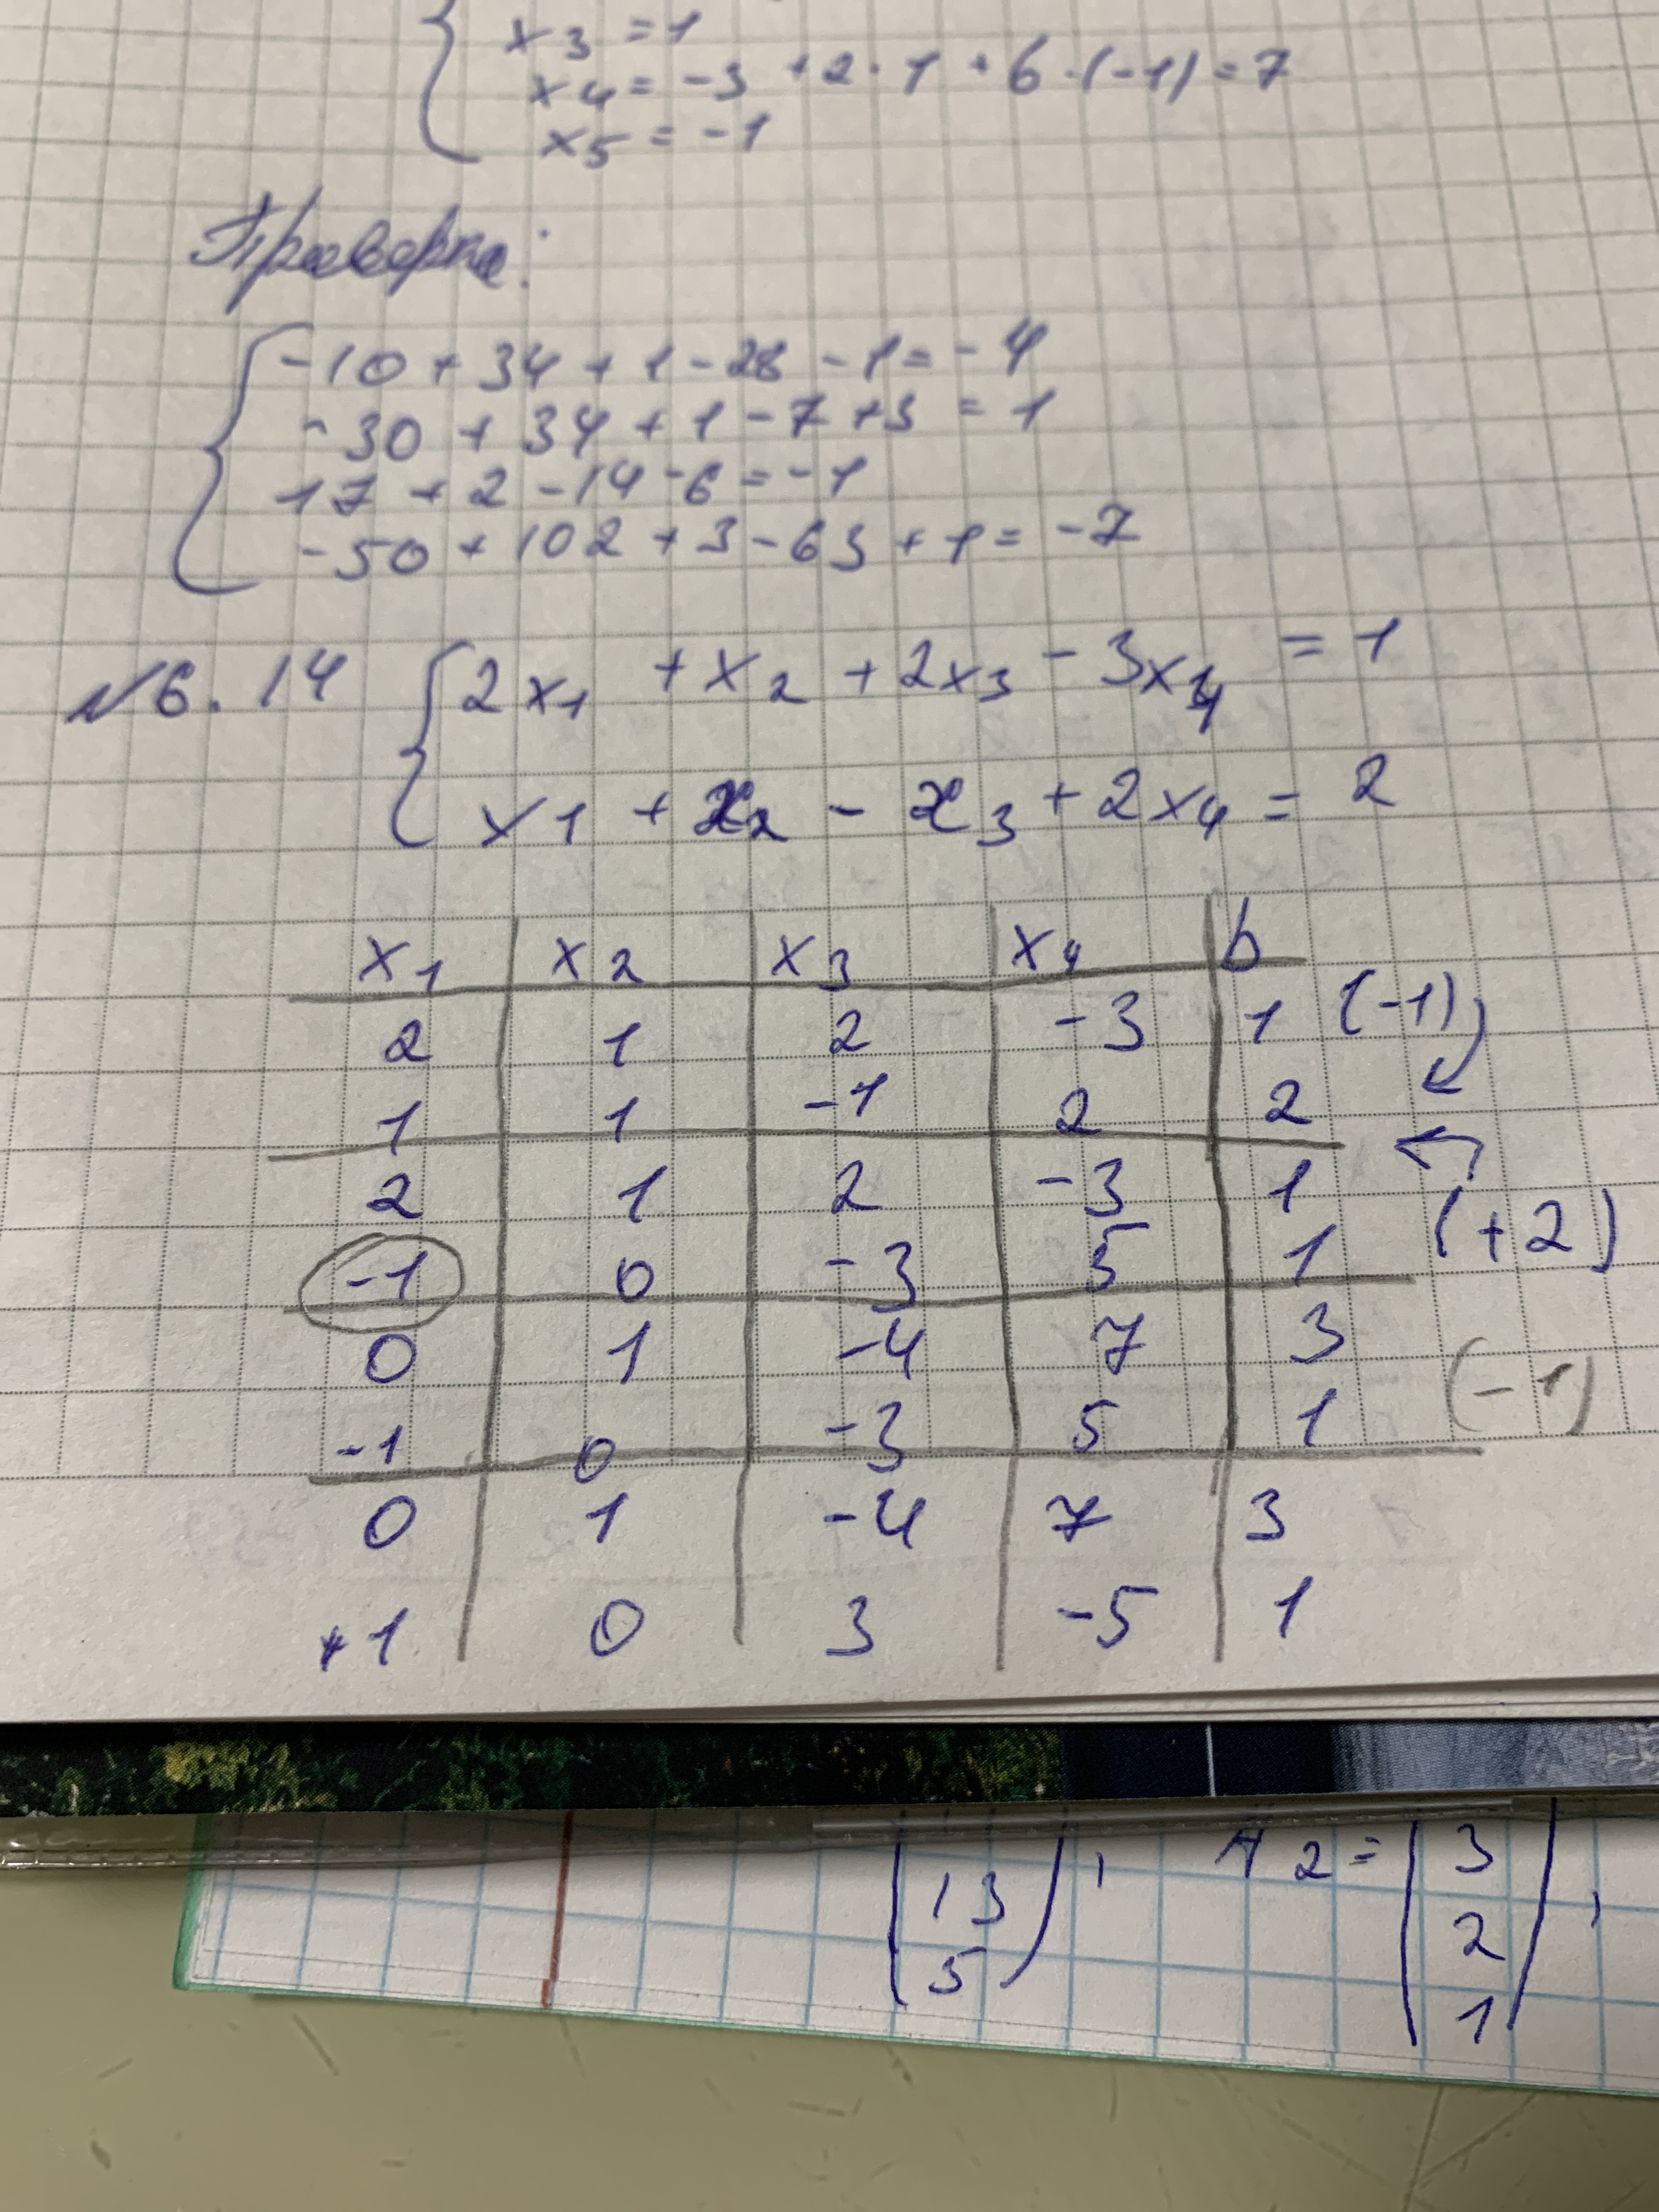 x3 = 1
x4 = -3 + 2·1 + 6·(-1) = 7
x5 = -1
Проверка:
-10 + 34 + 1 - 28 - 1 = -4
-30 + 34 + 1 - 7 + 3 = 1
17 + 2 - 14 - 6 = -1
-50 + 102 + 3 - 63 + 1 = -7
№6.14 2x1 + x2 + 2x3 - 3x4 = 1
x1 + x2 - x3 + 2x4 = 2
x1 x2 x3 x4 b
2 1 2 -3 1 (-1)
1 1 -1 2 2
2 1 2 -3 1
-1 0 -3 5 1 (+2)
0 1 -4 7 3
-1 0 -3 5 1 (-1)
0 1 -4 7 3
+1 0 3 -5 1
13 , A2 = 3
5 2 ,
1